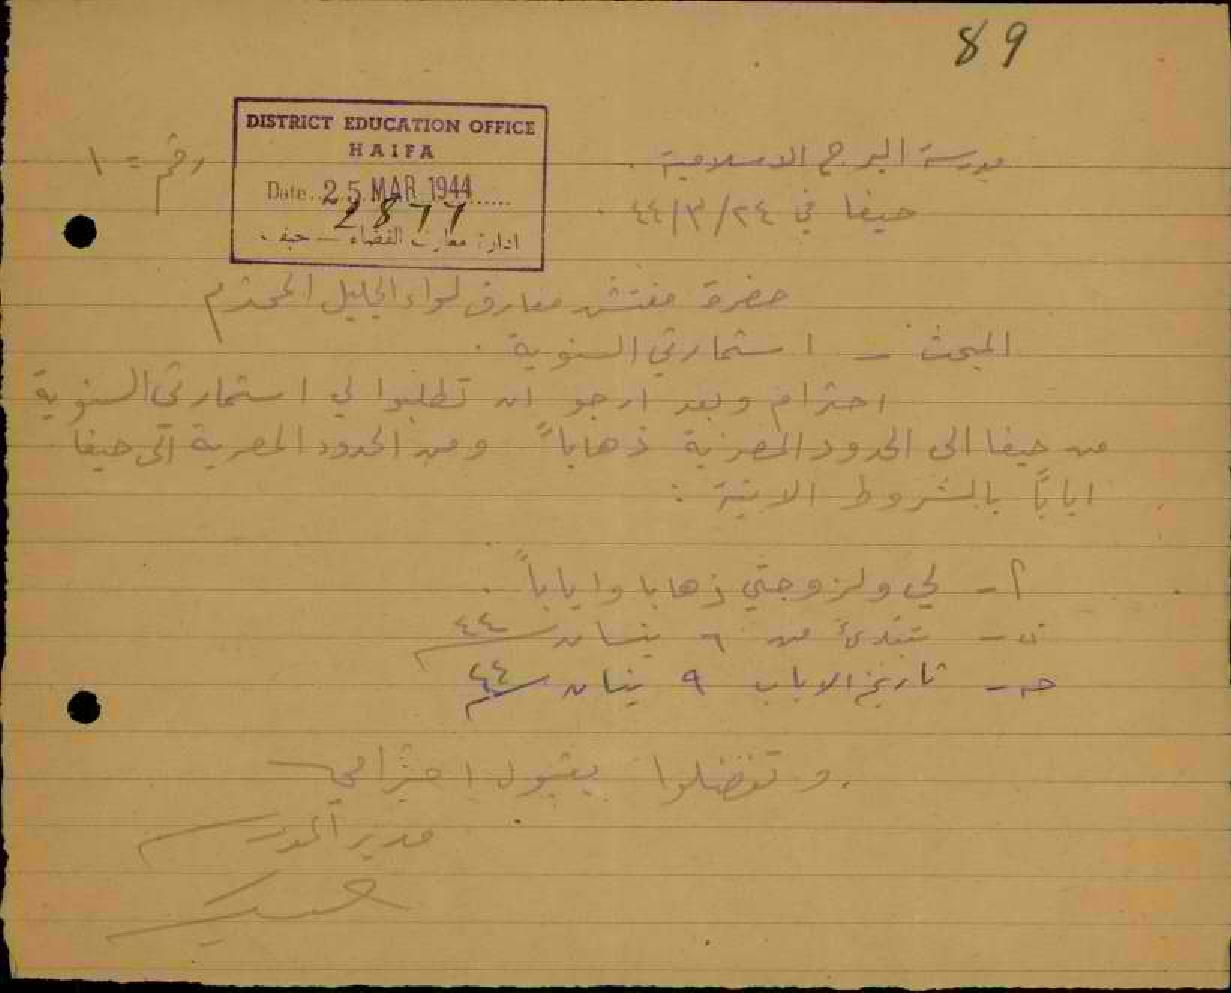 89
DISTRICT EDUCATION OFFICE
HAIFA
Date.. 25 MAR 1944
2877
ادارة معارف القضاء — حيفا
مدرسة البرج الاسلامية . رقم = ١
حيفا في ٢٤/٣/٤٤ .
حضرة مفتش معارف لواء الجليل المحترم
المبحث - استمارتي السنوية .
احترام وبعد ارجو ان تطلبوا لي استمارتي السنوية
من حيفا الى الحدود المصرية ذهاباً ومن الحدود المصرية الى حيفا
اياباً بالشروط الاتية :
أ - لي ولزوجتي ذهابا واياباً .
ب - تبتدئ من ٦ نيسان سنة ٤٤
ج - تاريخ الاياب ٩ نيسان سنة ٤٤
وتفضلوا بقبول احترامي
مدير المدرسة